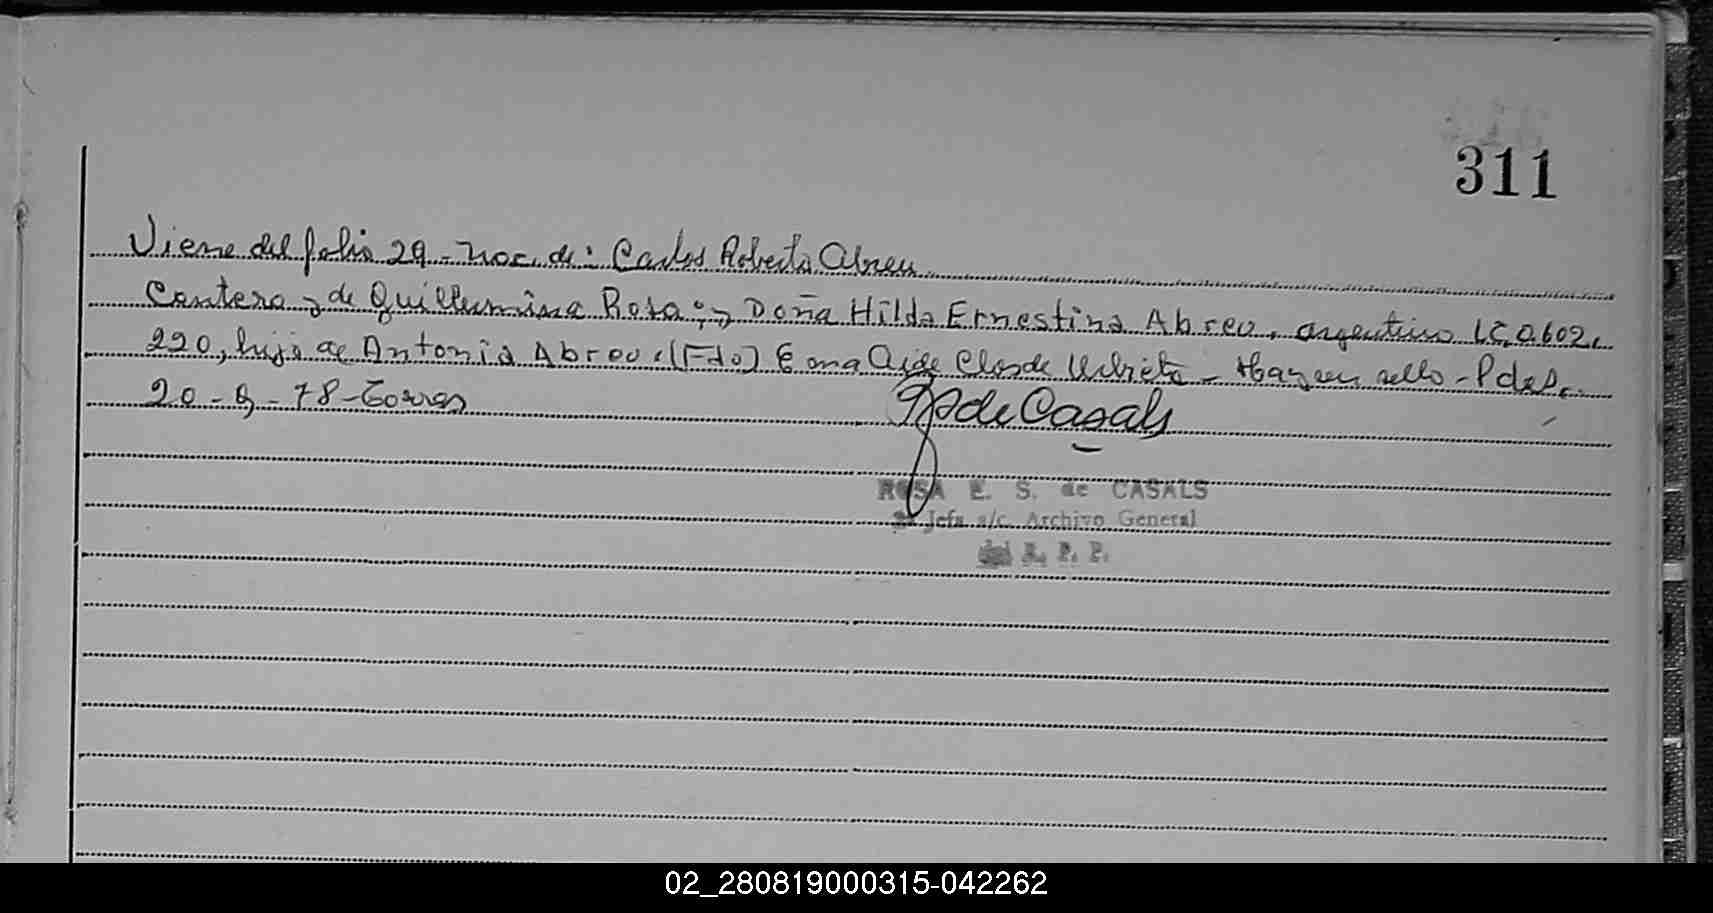 311
Viene del folio 29 - nac. de: Carlos Roberto Abreu
Cantera y de Guillermina Rosa; y Doña Hilda Ernestina Abreu, argentina LC. 0.602.
220, hija de Antonia Abreu. (Fdo) Ema Aide Clos de Urbieta - Hay un sello - P de l.
20 - 9 - 78 - Torres
R de Casals
ROSA E. S. de CASALS
Jefa a/c. Archivo General
del R. P. P.
02_280819000315-042262